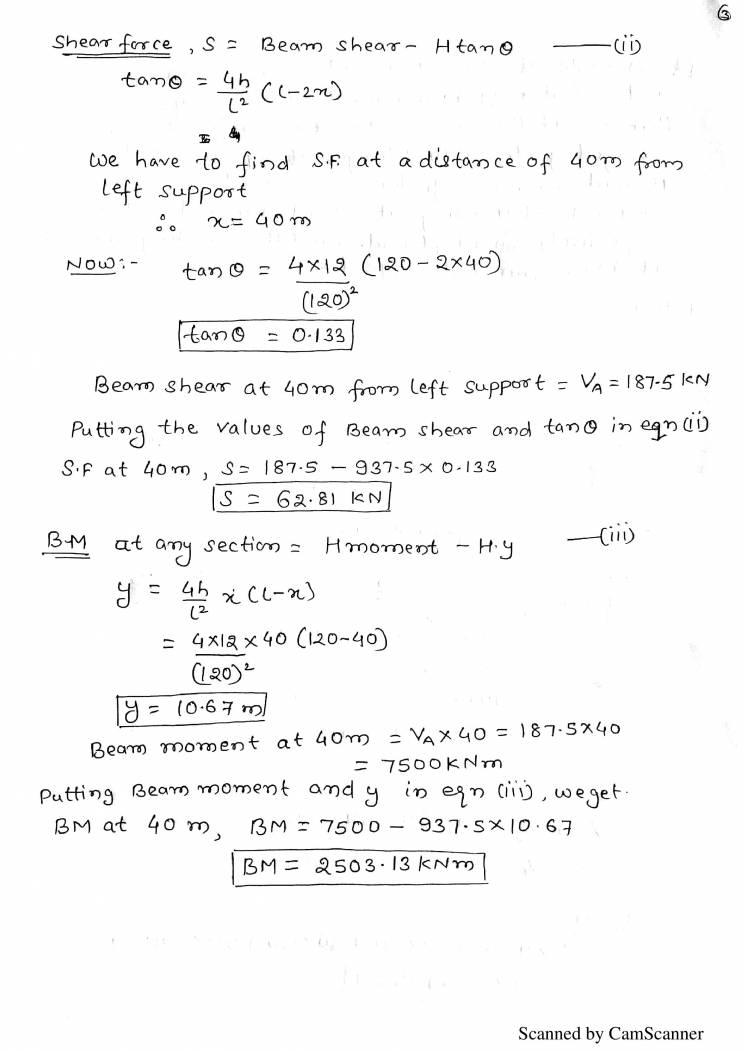 3
Shear force, S = Beam shear - H tanθ —(ii)
tanθ = 4h/l² (l-2x)
We have to find S.F. at a distance of 40m from
left support
∴ x = 40m
Now:- tanθ = 4×12/(120)² (120 - 2×40)
tanθ = 0.133
Beam shear at 40m from left support = VA = 187.5 kN
Putting the values of Beam shear and tanθ in eqn (ii)
S.F at 40m, S = 187.5 - 937.5 × 0.133
S = 62.81 KN
B.M at any section = Hmoment - H.y —(iii)
y = 4h/l² x (l-x)
= 4×12/(120)² × 40 (120-40)
y = 10.67 m
Beam moment at 40m = VA × 40 = 187.5×40
= 7500KNm
Putting Beam moment and y in eqn (iii), we get.
BM at 40 m, BM = 7500 - 937.5×10.67
BM = 2503.13 KNm
Scanned by CamScanner